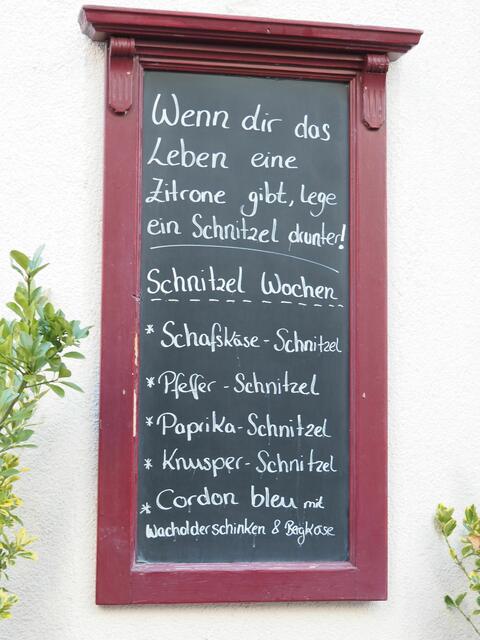 Wenn dir das
Leben eine
Zitrone gibt, lege
ein Schnitzel drunter!
Schnitzel Wochen
* Schafskäse-Schnitzel
* Pfeffer-Schnitzel
* Paprika-Schnitzel
* Knusper-Schnitzel
* Cordon bleu mit
Wacholderschinken & Bergkäse